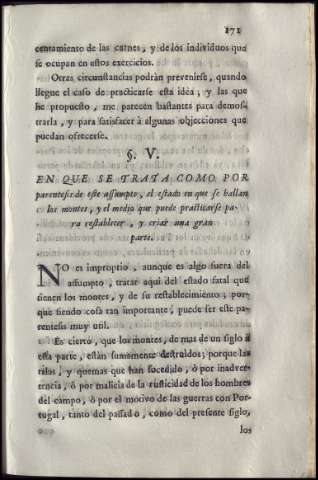 171
centamiento de las carnes, y de los individuos que
se ocupan en estos exercicios.
Otras circunstancias podràn prevenirse, quando
llegue el caso de practicarse esta idèa; y las que
he propuesto, me parecen bastantes para demos-
trarla, y para satisfacer à algunas objecciones que
puedan ofrecerse.
§. V.
EN QUE SE TRATA COMO POR
parentesis de este assumpto, el estado en que se hallan
los montes, y el medio que puede practicarse pa-
ra restablecer, y criar una gran
parte.
NO es improprio, aunque es algo fuera del
assumpto, tratar aqui del estado fatal que
tienen los montes, y de su restablecimiento; por-
que siendo cosa tan importante, puede ser este pa-
rentesis muy util.
Es cierto, que los montes, de mas de un siglo à
esta parte, estàn sumamente destruìdos; porque las
talas, y quemas que han sucedido, ò por inadver-
tencia, ò por malicia de la rusticidad de los hombres
del campo, ò por el motivo de las guerras con Por-
tugal, tanto del passado, como del presente siglo,
los